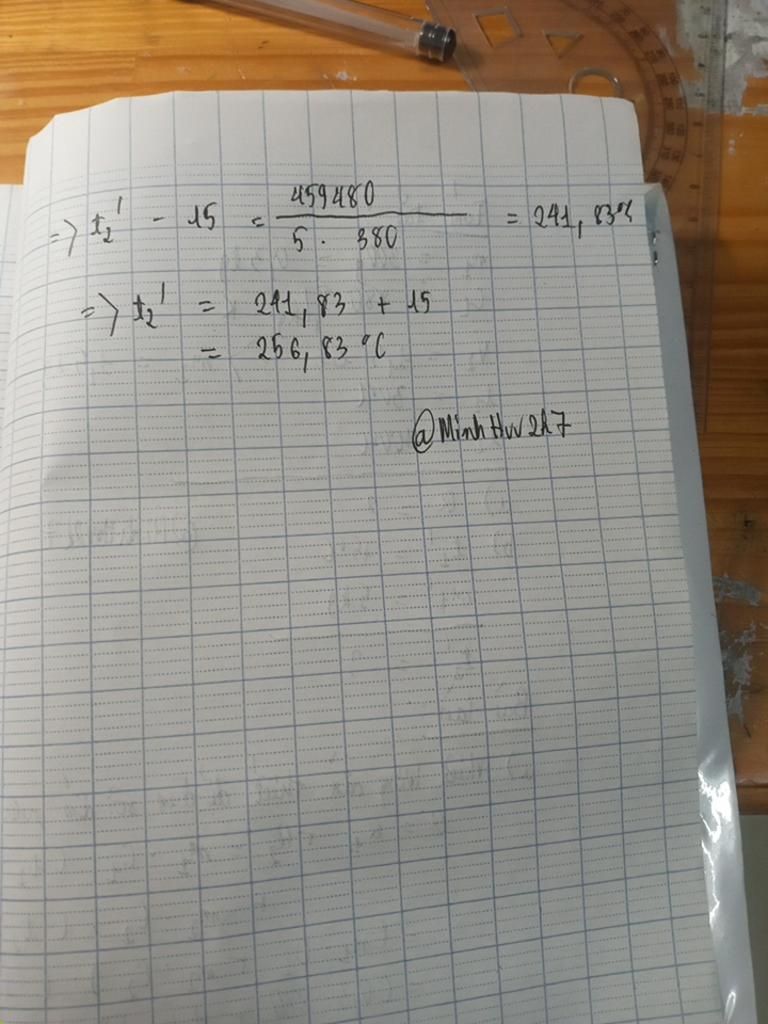 => t₂' - 15 = 459480 / 5 . 380 = 241, 83°C
=> t₂' = 241, 83 + 15
= 256, 83 °C
@MinhHuv2k7